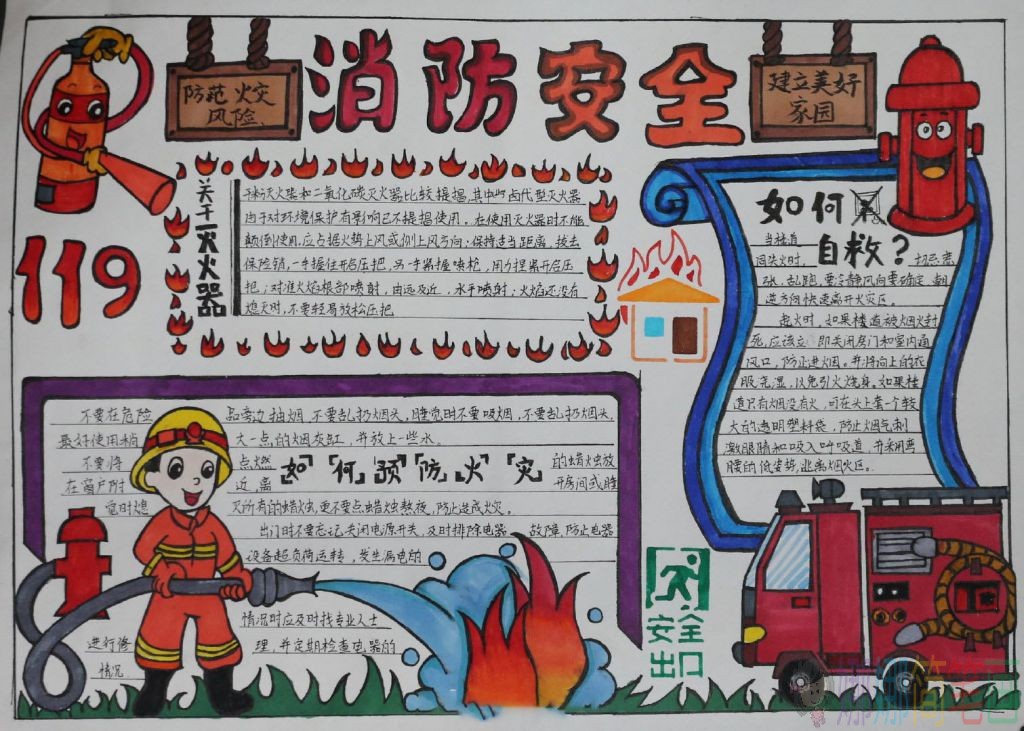 消防安全
防范火灾
风险
建立美好
家园
119
关于灭火器
干粉灭火器和二氧化碳灭火器比较提倡,其中
卤代型灭火器
由于对环境保护有影响已不提倡使用。在使用灭火器时不能
颠倒使用,应占据火势上风或侧上风方向,保持适当距离,拔去
保险销,一手握住开启压把,另一手紧握喷枪,用力捏紧开启压
把;对准火焰根部喷射,由远及近,水平喷射;火焰还没有
熄灭时,不要轻易放松压把
如何
自救?
当楼道
间失火时,
切忌慌
张、乱跑,要冷静风向要确定,朝
逆方向快速离开火灾区。
起火时,如果楼道被烟火封
死,应该立即关闭房门和室内通
风口,防止进烟。并将向上的衣
服浇湿,以免引火烧身。如果楼
道只有烟没有火,可在头上套一个较
大的透明塑料袋,防止烟气刺
激眼睛和吸入呼吸道,并采用弯
腰的低姿势,逃离烟火区。
如何预防火灾
不要在危险品旁边抽烟,不要乱扔烟头,睡觉时不要吸烟,不要乱扔烟头,
最好使用稍大一点的烟灰缸,并放上一些水。
不要将点燃的蜡烛放
在窗户附近,离开房间或睡
觉时熄灭所有的蜡烛,更不要点蜡烛熬夜,防止造成火灾。
出门时不要忘记关闭电源开关,及时排除电器故障,防止电器
设备超负荷运转,发生漏电的
情况时应及时找专业人士
进行修理,并定期检查电器的
情况。
安全
出口